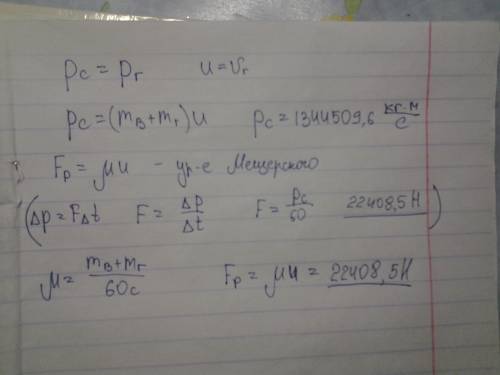 pс = pг u = vг
pс = (mв+mг)u pс = 1344509,6 кг·м/с
Fр = μu - ур-е Мещерского
(Δp = FΔt F = Δp/Δt F = pс/60 22408,5 Н)
μ = mв+mг/60с Fр = μu = 22408,5 Н